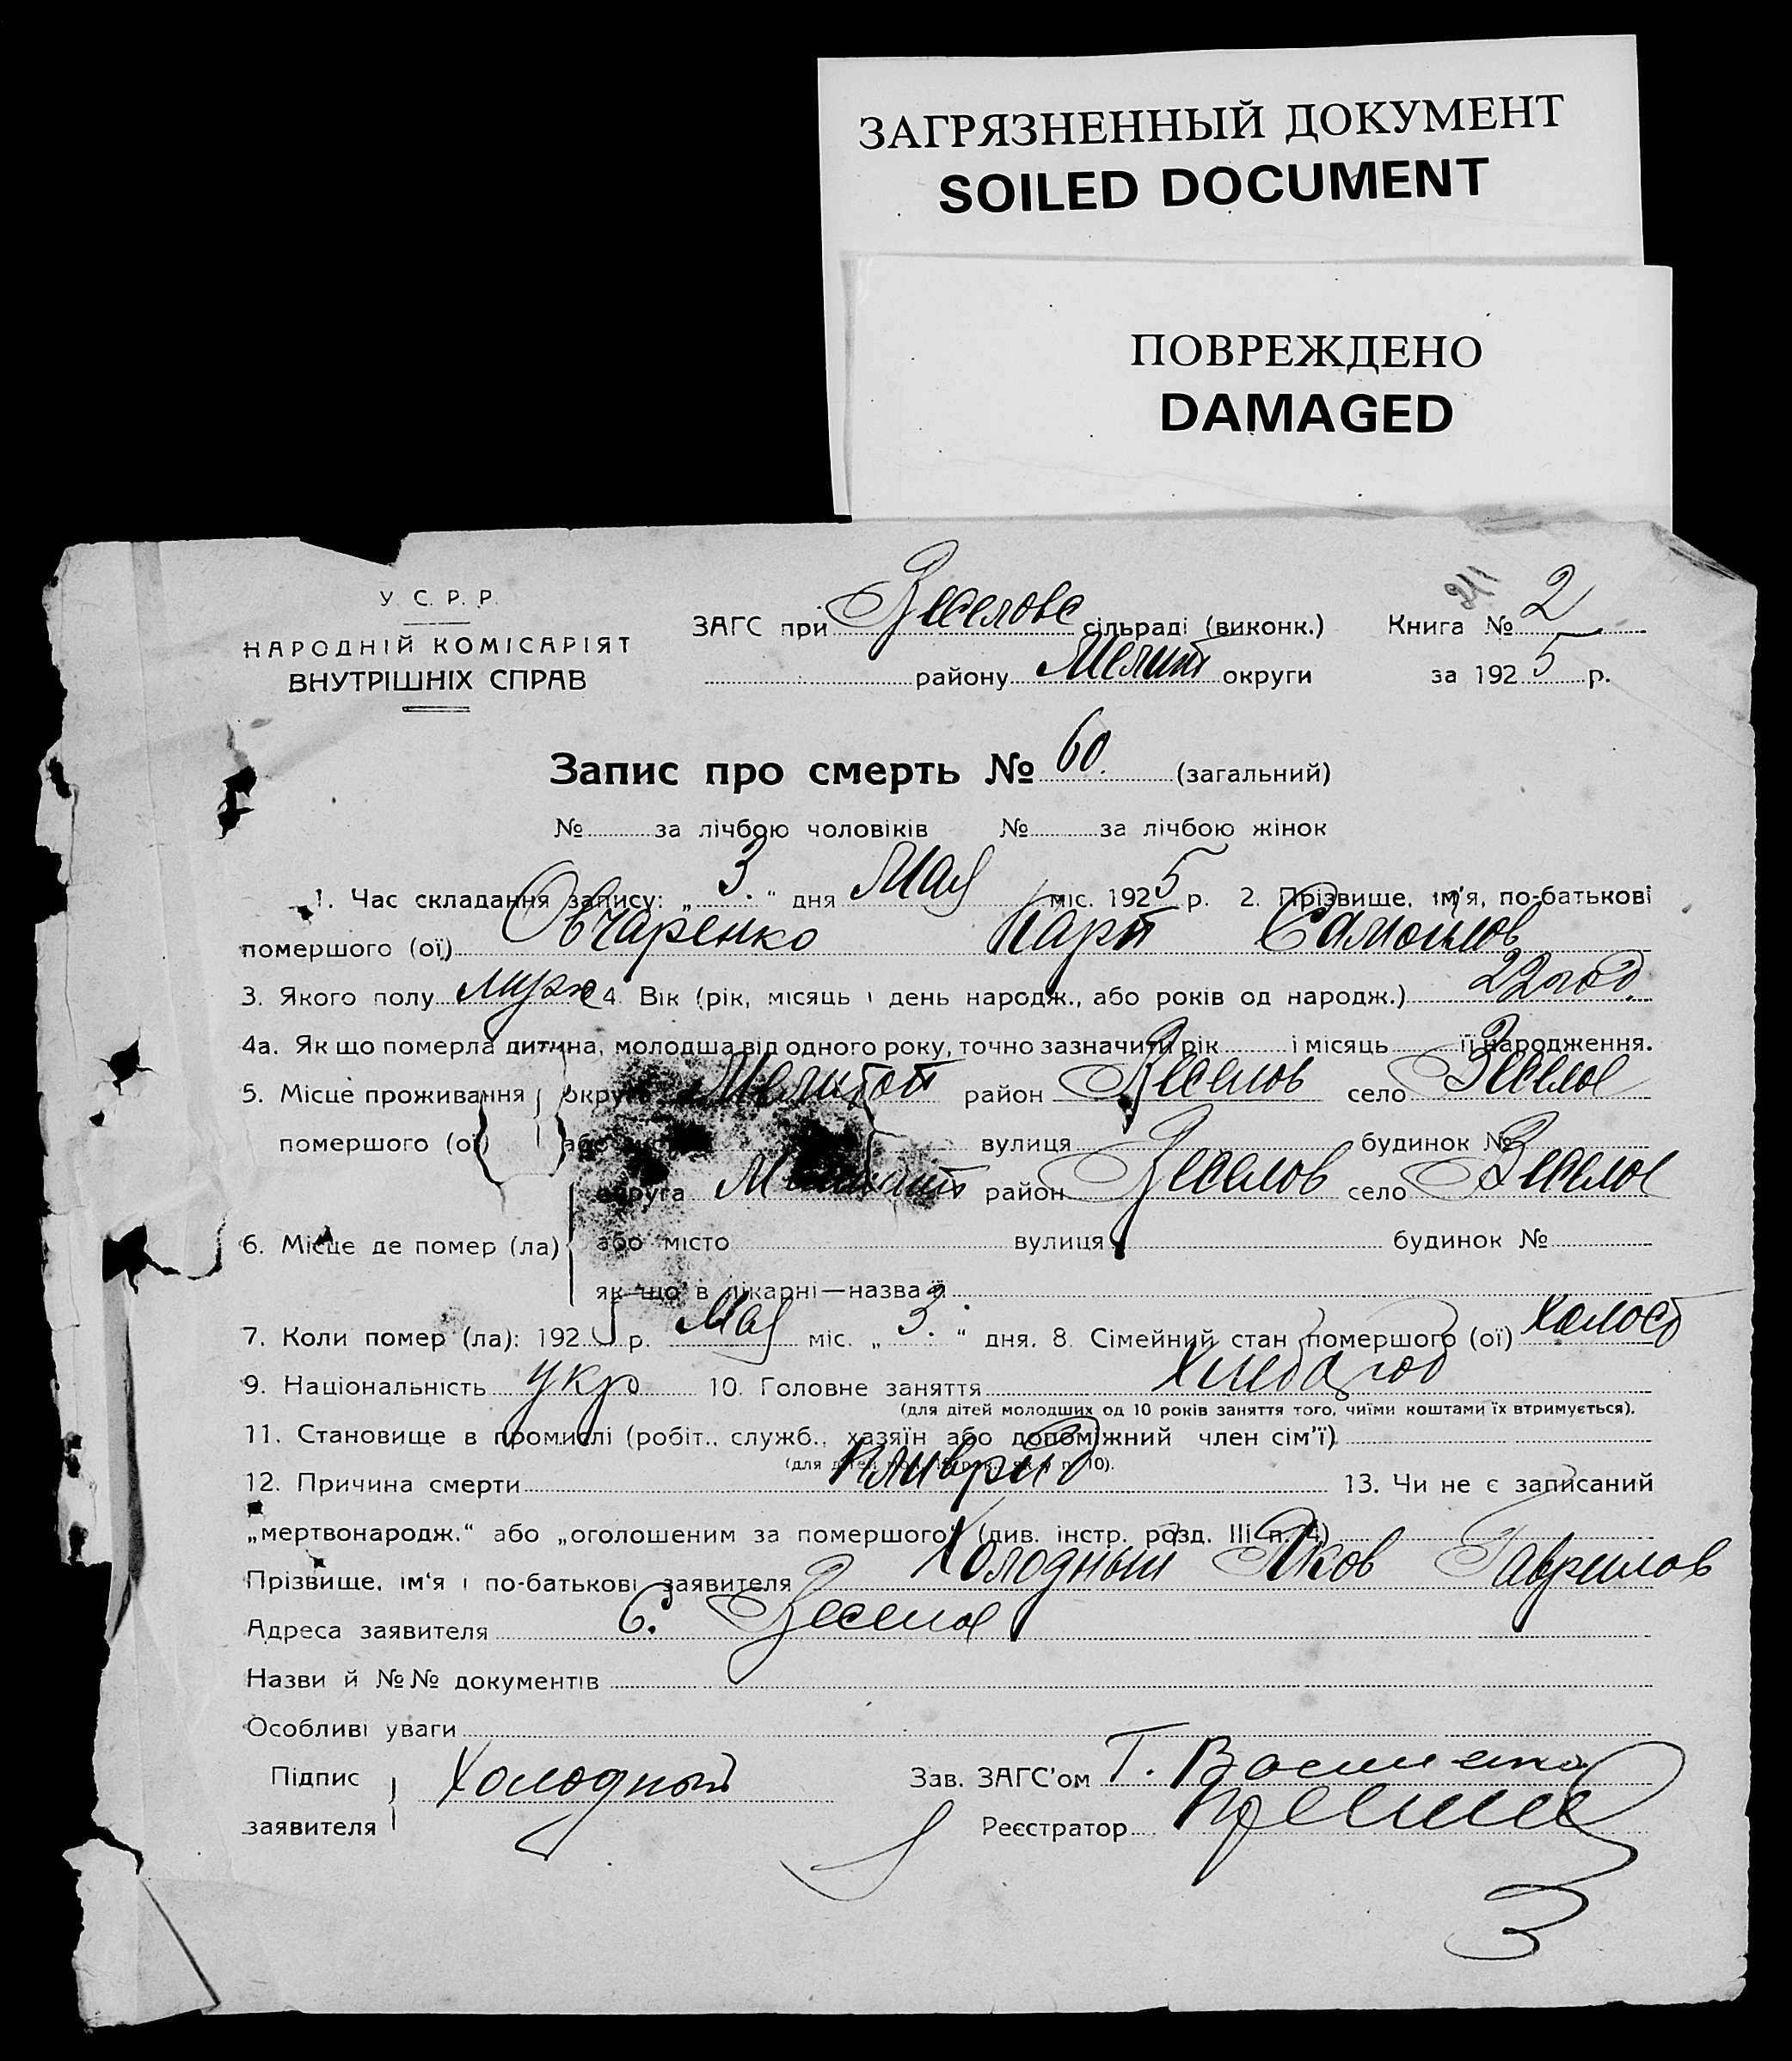 ЗАГРЯЗНЕННЫЙ ДОКУМЕНТ
SOILED DOCUMENT
ПОВРЕЖДЕНО
DAMAGED
У. С. Р. Р.
НАРОДНІЙ КОМІСАРІЯТ
ВНУТРІШНІХ СПРАВ
ЗАГС при Веселовс сільраді (виконк.) Книга № 2
району Мелит округи за 1925 р.
Запис про смерть № 60. (загальний)
№ за лічбою чоловіків № за лічбою жінок
1. Час складання запису: „3.“ дня Мая міс. 1925 р. 2. Прізвище, ім'я, по-батькові
помершого (ої) Овчаренко Карп Самойлов
3. Якого полу мужс 4. Вік (рік, місяць і день народж., або років од народж.) 22 год.
4а. Як що померла дитина, молодша від одного року, точно зазначити рік і місяць її народження.
5. Місце проживання округа Мелитоп район Веселов село Веселое
помершого (ої) або вулиця будинок №
6. Місце де помер (ла) округа район Веселов село Веселое
або місто вулиця будинок №
як що в лікарні—назва її
7. Коли помер (ла): 1925 р. Мая міс. „3.“ дня. 8. Сімейний стан помершого (ої) Холост
9. Національність укр 10. Головне заняття
(для дітей молодших од 10 років заняття того, чиїми коштами їх втримується).
11. Становище в промислі (робіт., служб., хазяїн або допоміжний член сім'ї)
12. Причина смерти плеврит 13. Чи не є записаний
„мертвонародж.“ або „оголошеним за помершого“ (див. інстр. розд. III п. 4)
Прізвище, ім'я і по-батькові заявителя Холодный Яков Гаврилов
Адреса заявителя С. Веселое
Назви й №№ документів
Особливі уваги
Підпис заявителя Холодный Зав. ЗАГС'ом Т.
Реєстратор
3